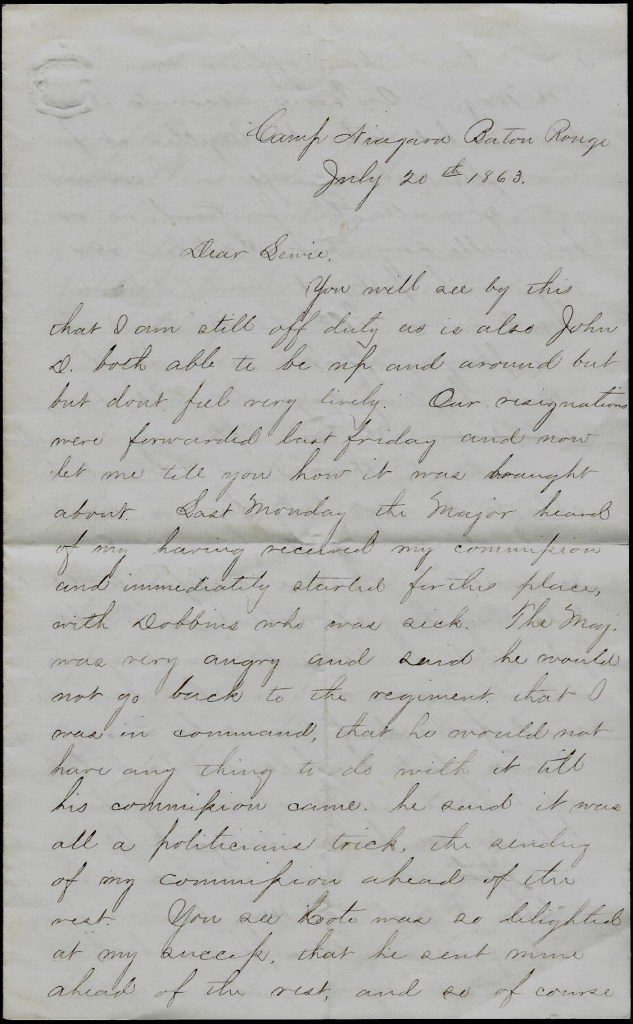 Camp Niagara Baton Rouge
July 20th 1863.
Dear Lewie,
You will see by this
that I am still off duty as is also John
D. both able to be up and around but
but dont feel very lively. Our resignations
were forwarded last friday and now
let me tell you how it was braught
about. Last Monday the Major heard
of my having received my commission
and immediately started for this place,
with Dobbins who was sick. The Maj.
was very angry and said he would
not go back to the regiment. that I
was in command, that he would not
have any thing to do with it till
his commission came. he said it was
all a politicians trick, the sending
of my commission ahead of the
rest. You see was so delighted
at my success, that he sent mine
ahead of the rest, and so of course